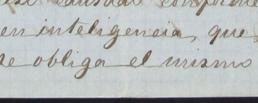 en inteligencia, que
se obliga el mismo